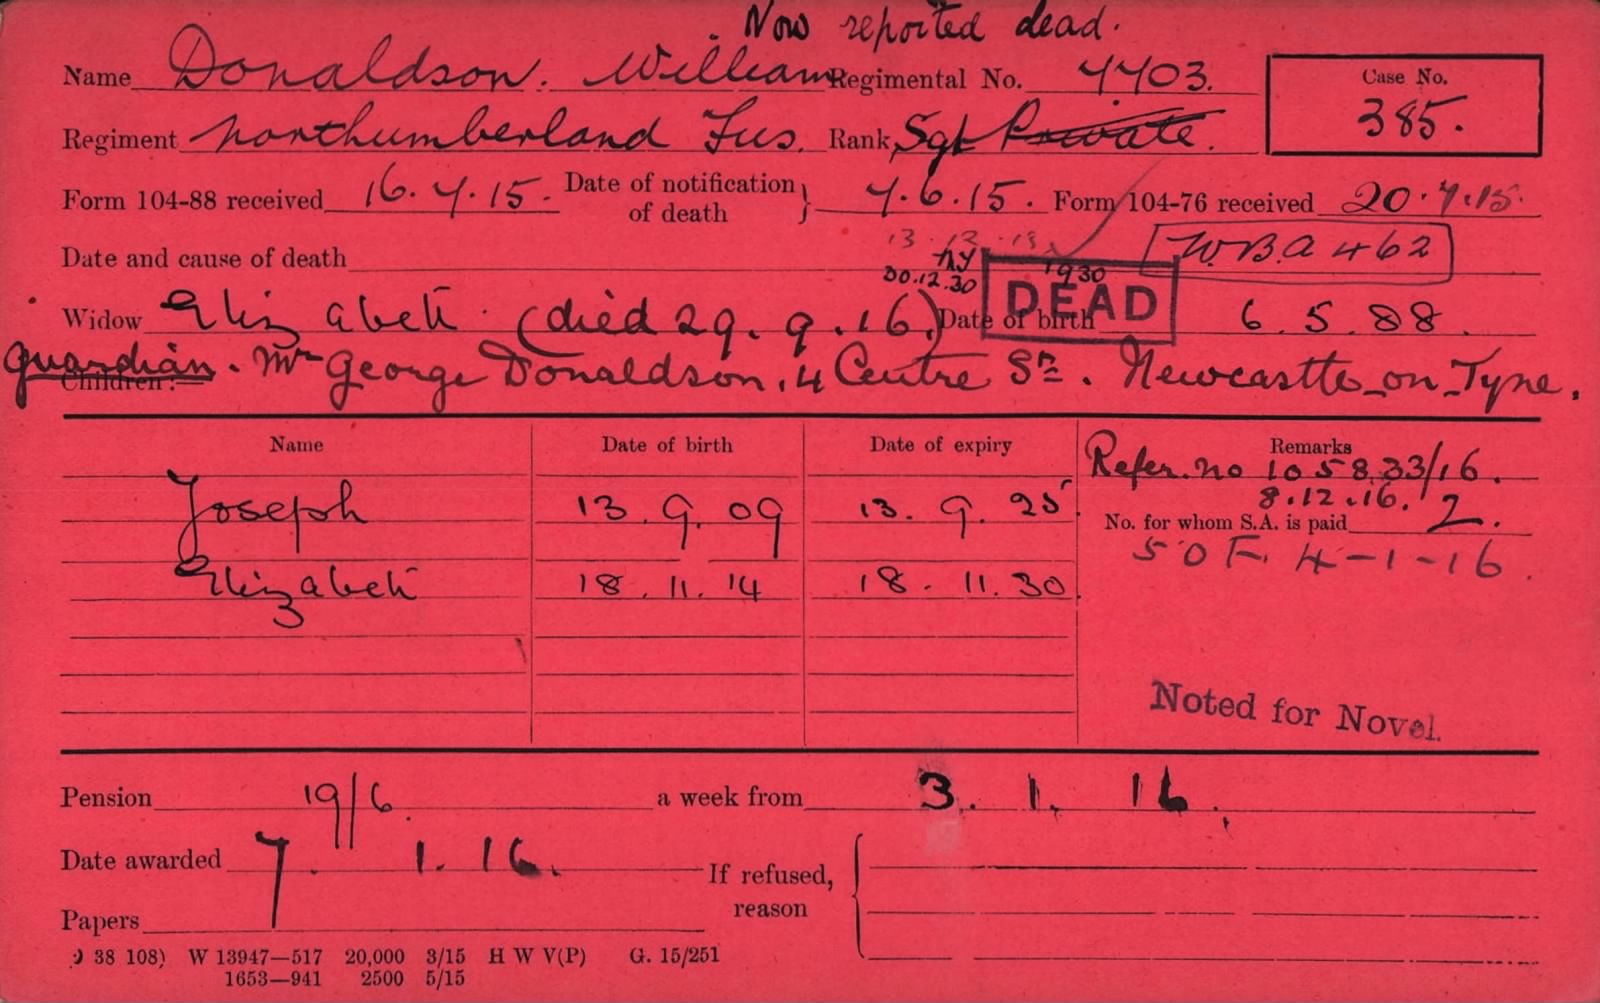 Now reported dead.
Name Donaldson. William Regimental No. 4403. Case No.
385.
Regiment Northumberland Fus. Rank Sgt Private.
Form 104-88 received 16.7.15. Date of notification of death } 7.6.15. Form 104-76 received 20.7.15.
Date and cause of death W.B.A 462
30.12.30 1930
DEAD
Widow Elizabeth (died 29.9.16.) Date of birth 6.5.88.
guardian. Mr George Donaldson. 4 Centre St. Newcastle-on-Tyne.
Children:
Name Date of birth Date of expiry Remarks
Refer. no 105833/16.
8.12.16.
Joseph 13.9.09 13.9.25
No. for whom S.A. is paid 2.
SOF. 4-1-16.
Elizabeth 18.11.14 18.11.30
Noted for Novel.
Pension 19/6. a week from 3.1.16.
Date awarded 7.1.16. If refused, reason
Papers
38 108) W 13947—517 20,000 3/15 H W V(P) G. 15/251
1653—941 2500 5/15